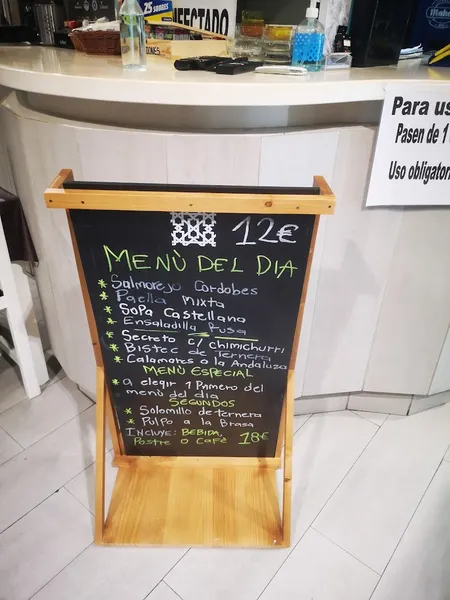 25 SOBRES
FECTADO
Mahou
Para us
Pasen de 1
Uso obligator
12€
MENÙ DEL DIA
* Salmorejo Cordobes
* Paella mixta
* Sopa Castellana
* Ensaladilla Rusa
* Secreto c/ chimichurri
* Bistec de Ternera
* Calamares a la Andaluza
MENÙ ESPECIAL
* a elegir 1 Primero del
menù del dia
SEGUNDOS
* Solomillo de ternera
* Pulpo a la Brasa
INCLUYE: BEBIDA,
Postre o Cafè 18€